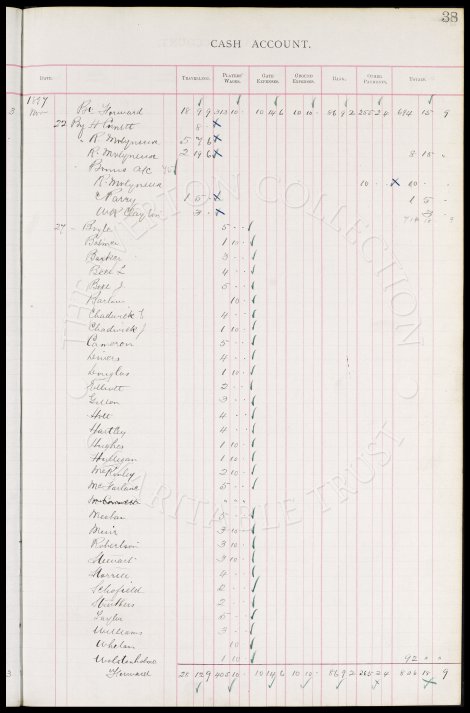 38
CASH ACCOUNT.
DATE. TRAVELLING. PLAYERS' WAGES. GATE EXPENSES. GROUND EXPENSES. RENT. OTHER PAYMENTS. TOTAL.
1897
3 Nov By Forward 18 9 9 313 10 - 10 14 6 10 10 - 86 9 2 255 2 4 694 15 9
22 By H 8 -
" R. Molyneux 5 7 6
" R. Molyneux 2 19 6 8 15 -
" Bonus a/c
R. Molyneux 10 - - 10 - -
C Parry 1 5 - 1 5 -
W R Clayton 3 - 3
27 - Boyle 5 - -
Balmer 1 10 -
Barker 3 - -
Bell L 4 - -
Bell J. 5 - -
Barlow 10 -
Chadwick E 4 - -
Chadwick J 1 10 -
Cameron 5 - -
Divers 4 - -
Douglas 1 10 -
Elliott 2 - -
Gillon 3 - -
Holt 4 - -
Hartley 4 - -
Hughes 1 10 -
Hulligan 1 10 -
McKinley 2 10 -
McFarlane 5 - -
Meechan 5 - -
Muir 3 10 -
Robertson 3 10 -
Stewart 3 10 -
Storrier 4 - -
Schofield 2 - -
Struthers 2 - -
Taylor 5 - -
Williams 3 - -
Whelan 10 -
Wolstenholme 1 10 - 92 " "
3 Forward 28 12 9 405 10 - 10 14 6 10 10 - 86 9 2 265 2 4 806 18 9
THE EVERTON COLLECTION
CHARITABLE TRUST